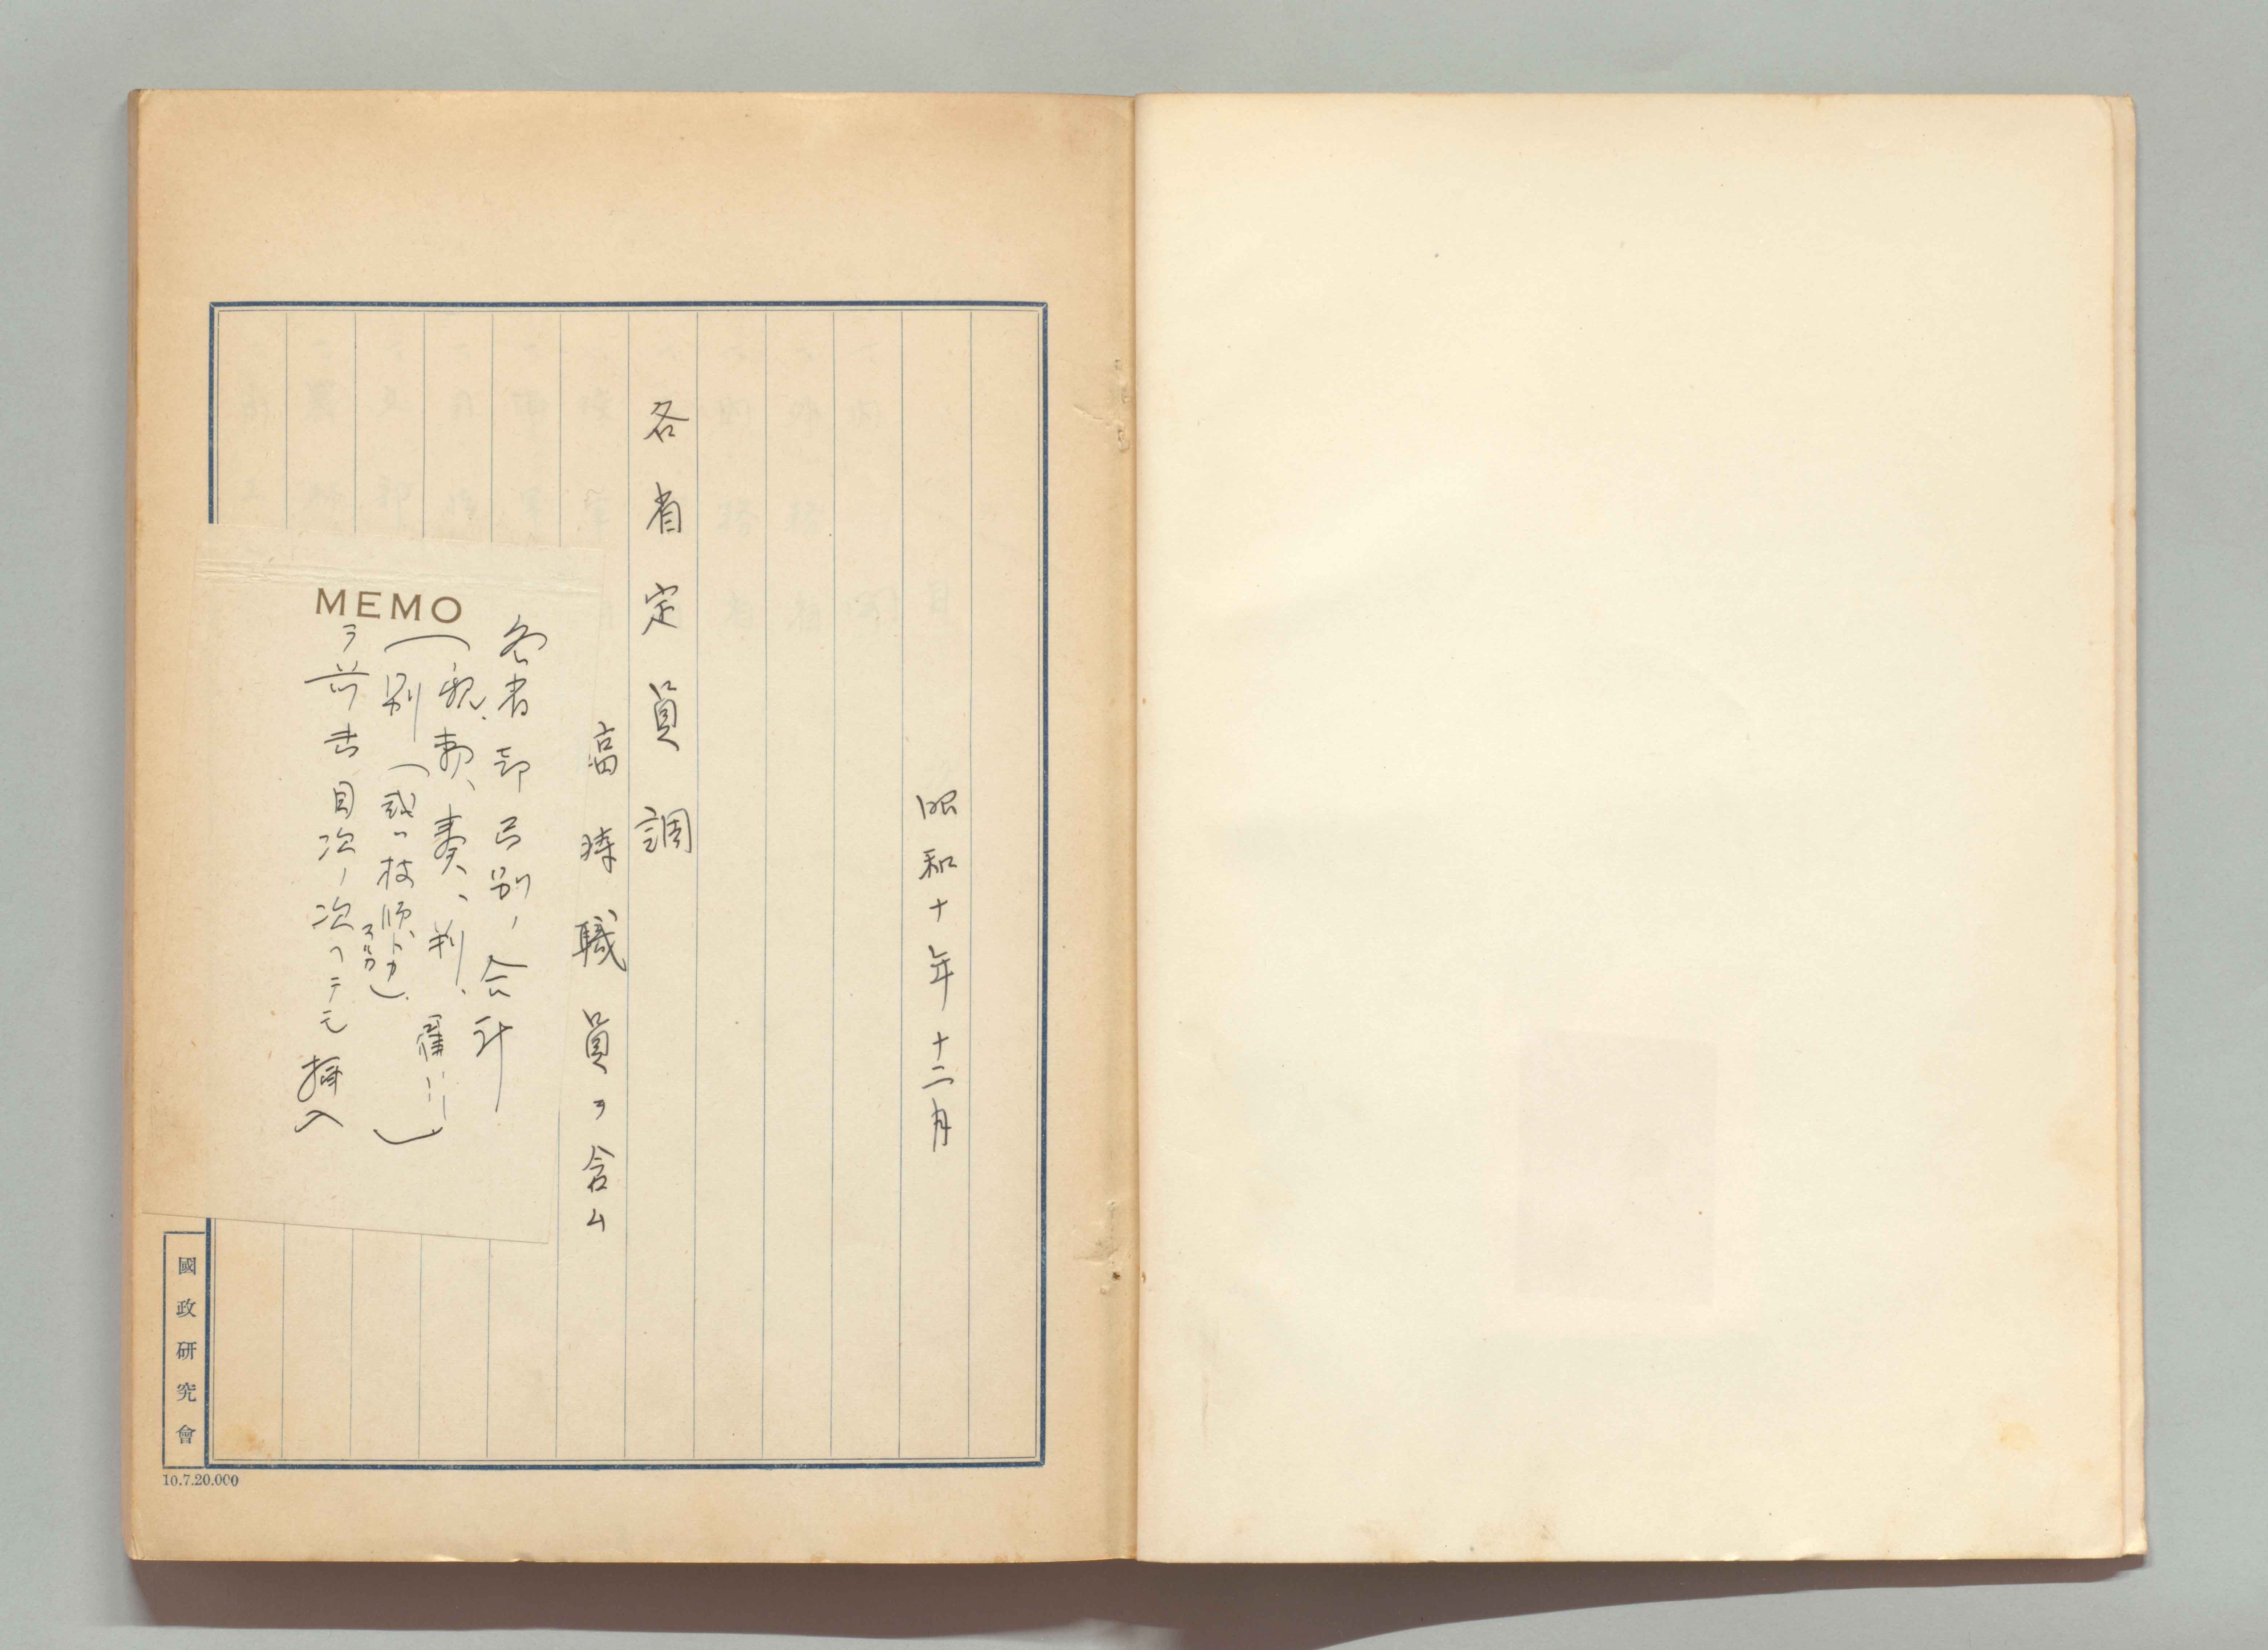 昭和十年十二月
各省定員調
臨時職員ヲ含ム
MEMO
各省部局別ノ合計
(親、勅、奏、判、雇……)
別(或ハ
ヲ前書目次ノ次ヘデモ挿入
國政研究會
10.7.20.000